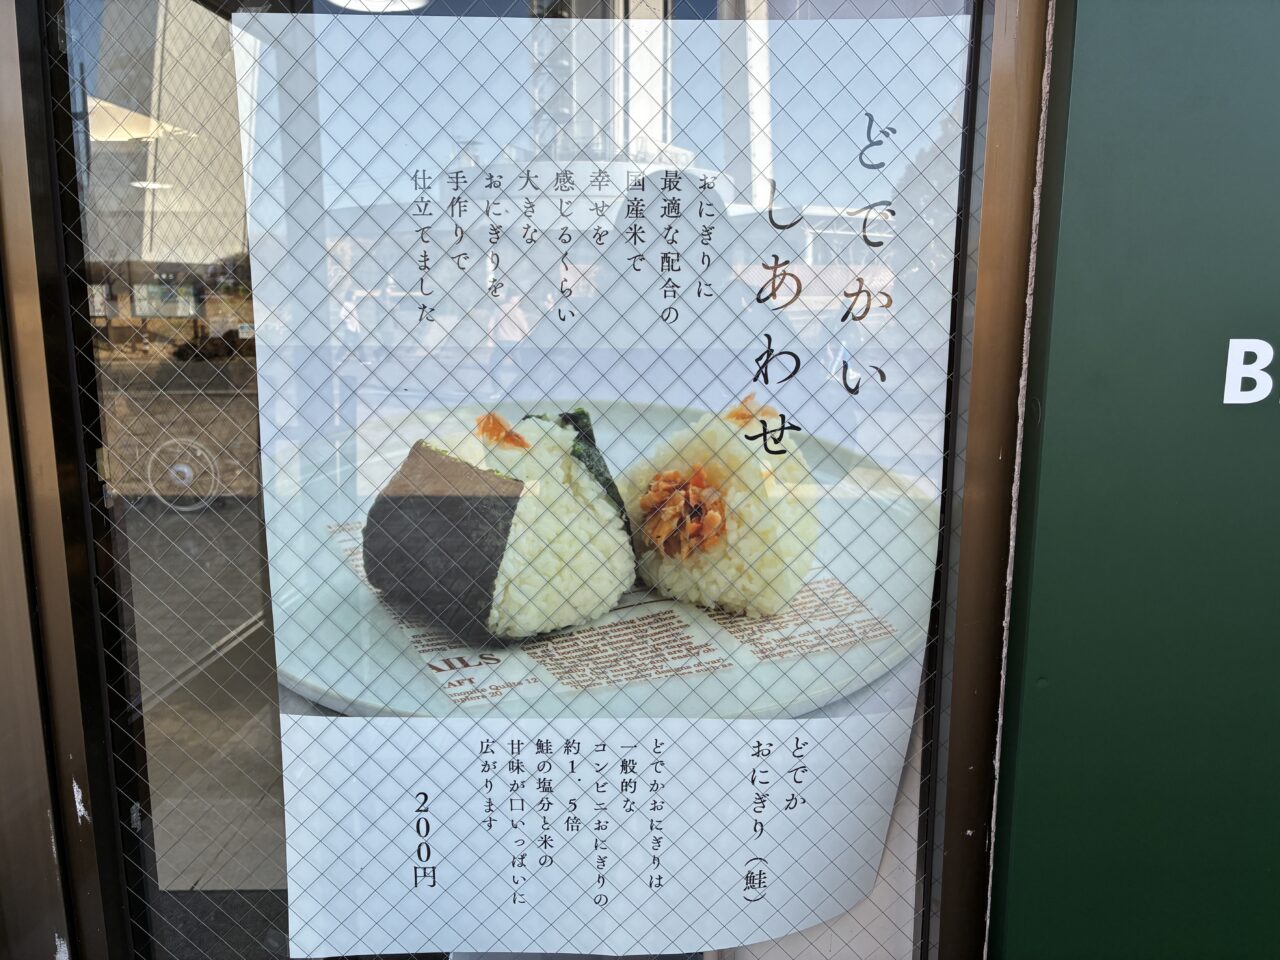 どでかい
しあわせ
おにぎりに
最適な配合の
国産米で
幸せを
感じるくらい
大きな
おにぎりを
手作りで
仕立てました
AILS
RAFT
どでか
おにぎり（鮭）
どでかおにぎりは
一般的な
コンビニおにぎりの
約1.5倍
鮭の塩分と米の
甘味が口いっぱいに
広がります
200円
B